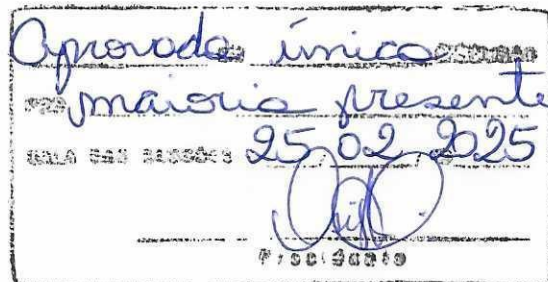 Aprovado em única discussão
por maioria presente
SALA DAS SESSÕES 25/02/2025
Presidente